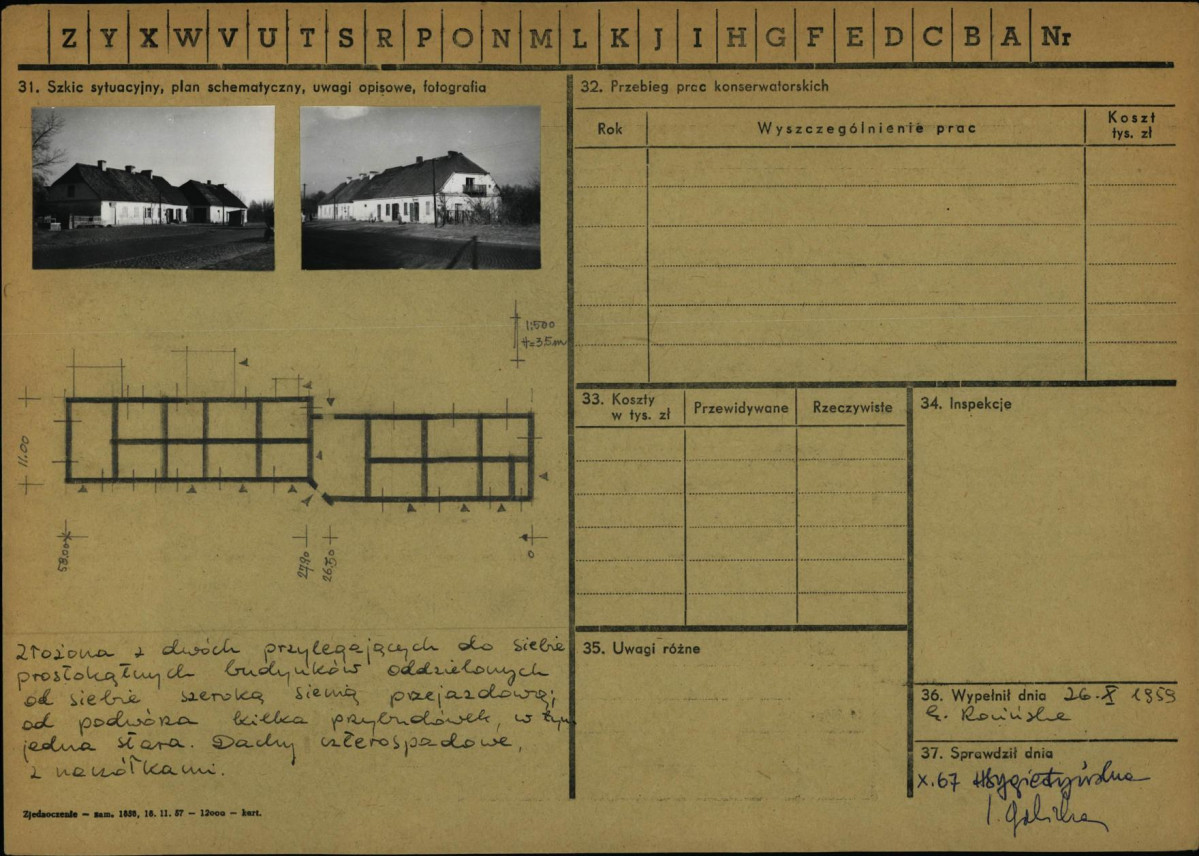 Z Y X W V U T S R P O N M L K J I H G F E D C B A Nr
31. Szkic sytuacyjny, plan schematyczny, uwagi opisowe, fotografia
1:500
H=3.5m
11.00
58.00
27.90
26.50
0
Złożona z dwóch przylegających do siebie
prostokątnych budynków oddzielonych
od siebie szeroką sienią przejazdową;
od podwórza kilka przybudówek, w tym
jedna stara. Dachy czterospadowe,
z naczółkami.
Zjednoczenie — zam. 1858, 18. 11. 57 — 12000 — kart.
32. Przebieg prac konserwatorskich
Rok Wyszczególnienie prac Koszt
tys. zł
33. Koszty
w tys. zł Przewidywane Rzeczywiste
34. Inspekcje
35. Uwagi różne
36. Wypełnił dnia 26.X 1959
37. Sprawdził dnia
X.67